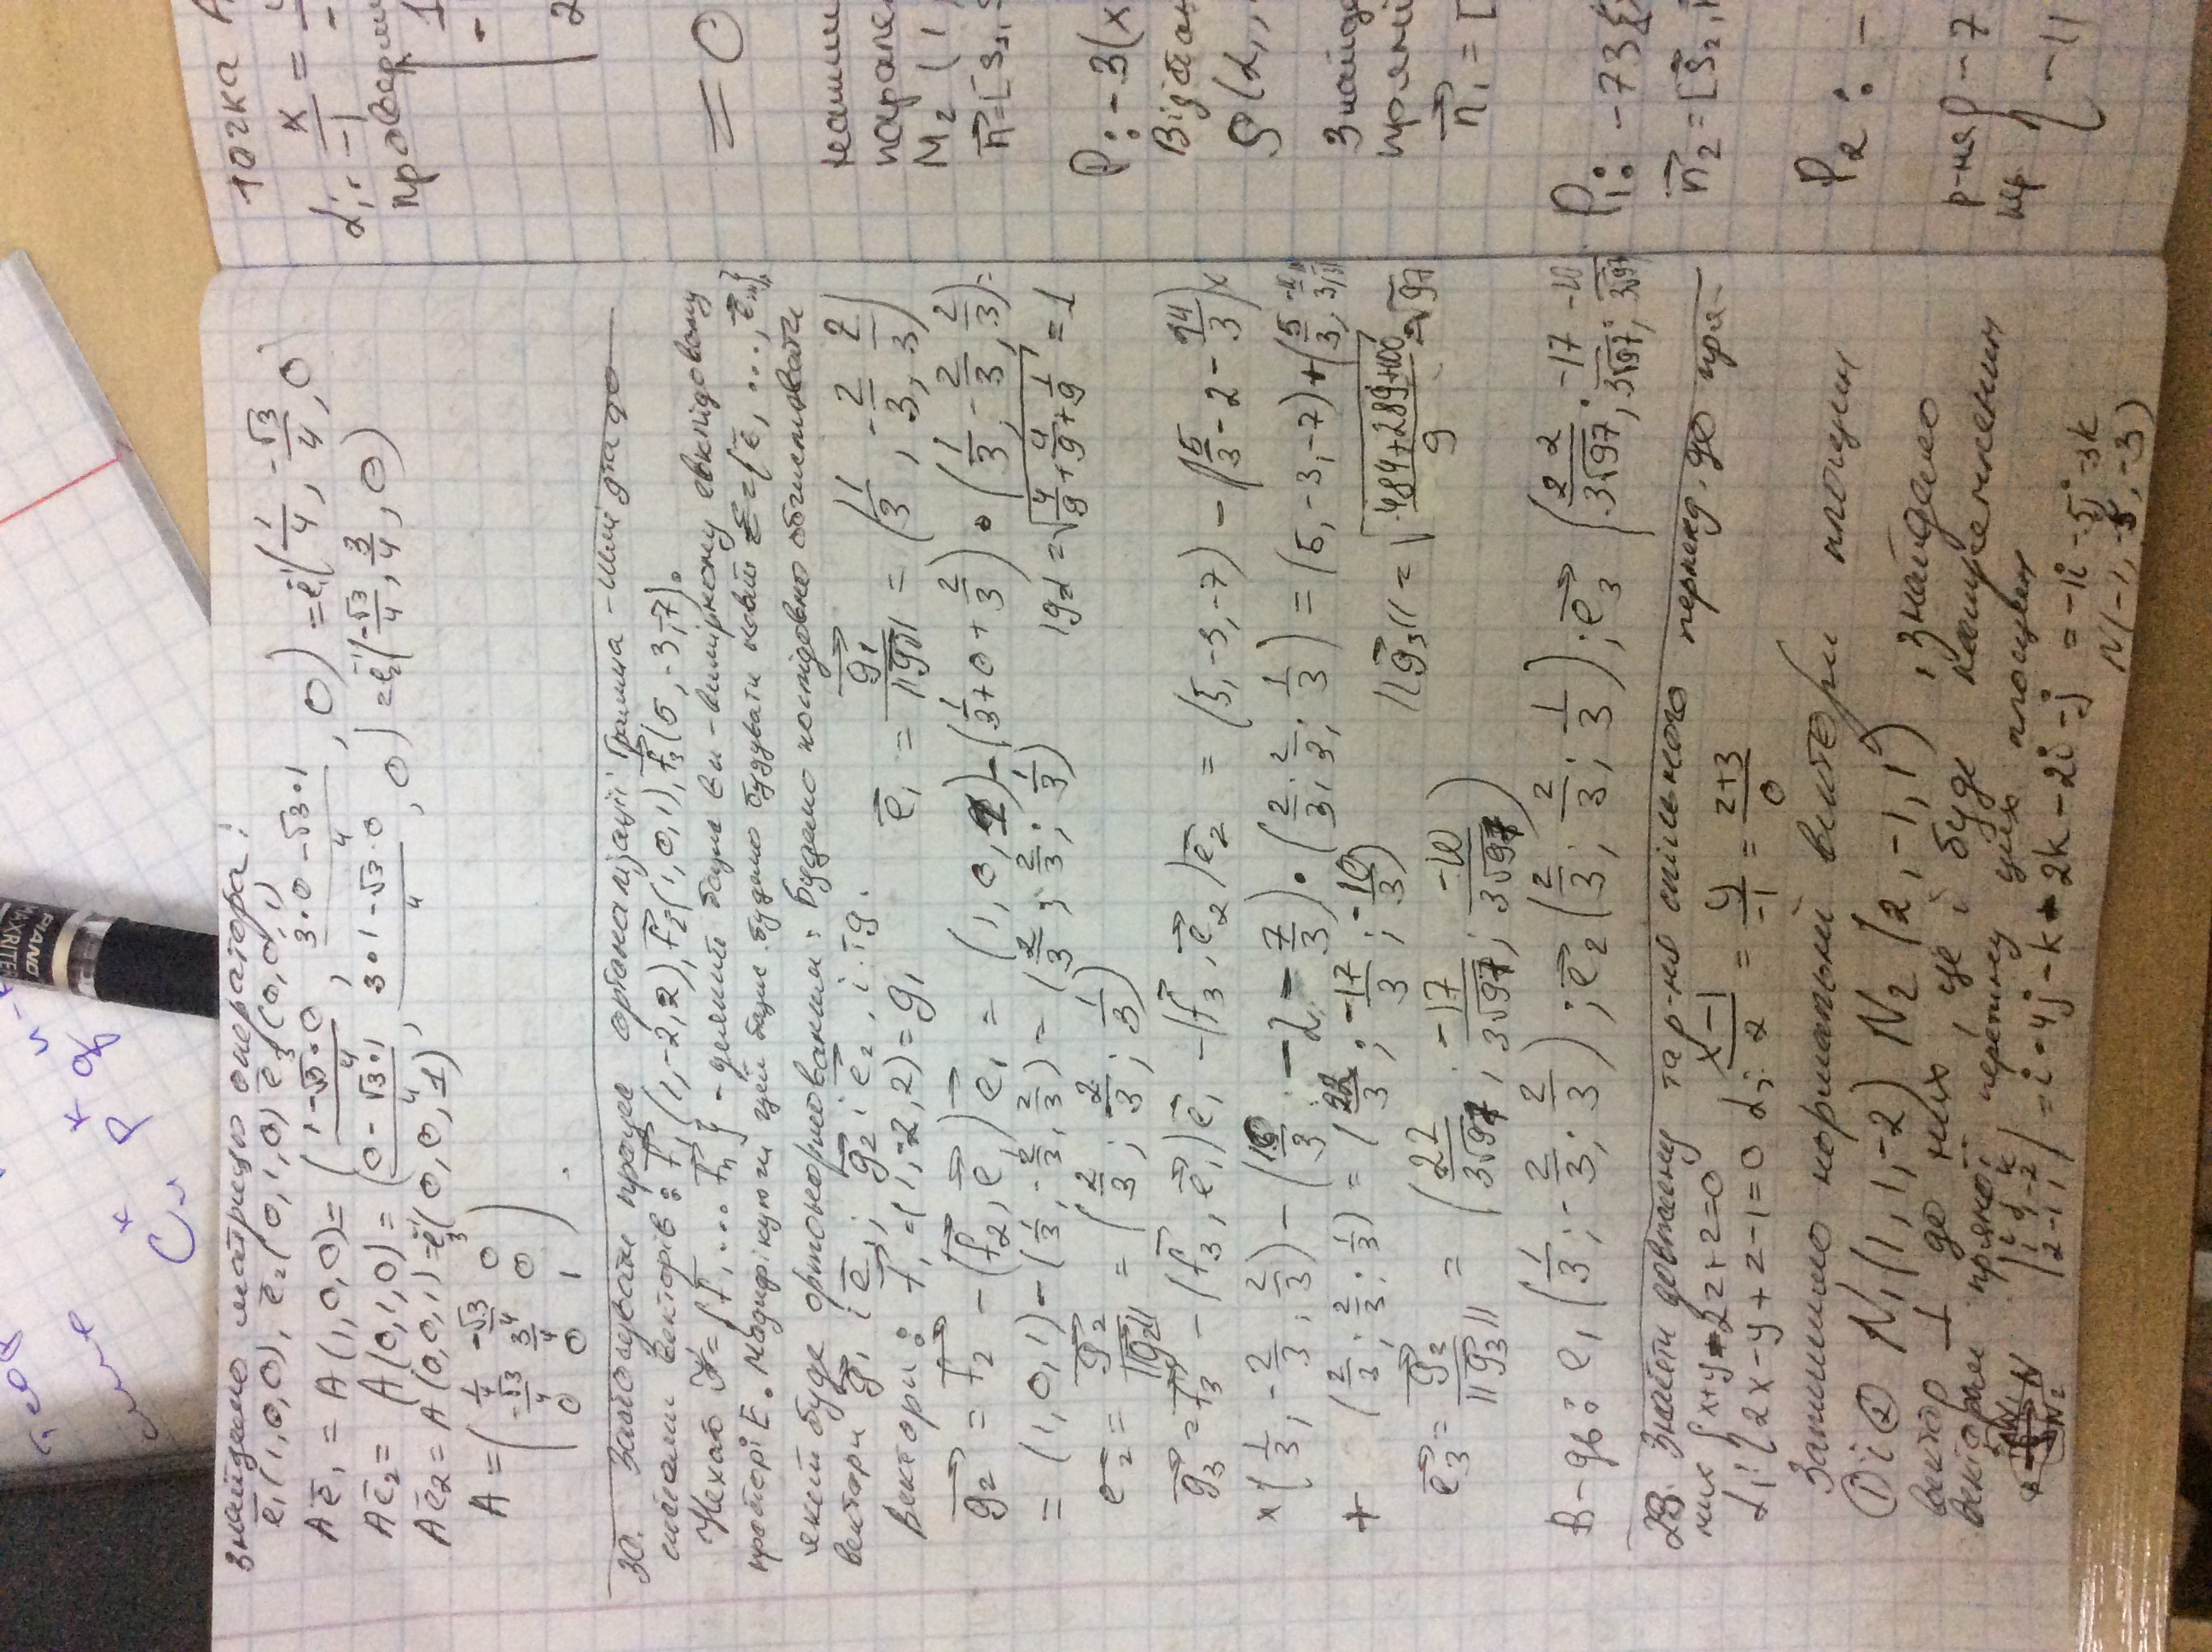 PIANO
MAXRITER
C_n^k p^k q^{n-k}
знайдемо матрицю оператора:
e̅₁(1,0,0), e̅₂(0,1,0) e̅₃(0,0,1)
Ae̅₁ = A(1,0,0) = ((1-√3•0)/4, (3•0-√3•1)/4, 0) = e̅₁'(1/4, -√3/4, 0)
Ae̅₂ = A(0,1,0) = ((0-√3•1)/4, (3•1-√3•0)/4, 0) = e̅₂'(-√3/4, 3/4, 0)
Ae̅₂ = A(0,0,1) = e̅₃'(0,0,1)
A = ( 1/4 -√3/4 0
-√3/4 3/4 0
0 0 1 ).
30. Застосувати процес ортоналізації Грамма-Шмідта до
системи векторів: f₁(1,-2,2), f₂=(1,0,1), f₃(5,-3,-7).
Нехай F={f₁...fn} - деякий базис в n-вимірному евклідовому
просторі E. Модифікуючи цей базис будемо будувати новий E={e̅₁,...,e̅n},
який буде ортонормованим. Будемо послідовно обчислювати
вектори g₁ і e₁; g₂ і e₂, і т.д.
Вектори: f₁=(1,-2,2)=g₁ e̅₁ = g₁/||g₁|| = (1/3, -2/3, 2/3)
g₂ = f₂ - (f₂,e₁)e₁ = (1,0,1) - (1/3+0+2/3)•(1/3, -2/3, 2/3) =
= (1,0,1) - (1/3, -2/3, 2/3) = (2/3; 2/3; 1/3) |g₂| = √(4/9+4/9+1/9) = 1
e₂ = g₂/||g₂|| = (2/3; 2/3; 1/3)
g₃ = f₃ - (f₃,e₁)e₁ - (f₃,e₂)e₂ = (5,-3,-7) - (5/3-2-14/3)×
×(1/3, -2/3, 2/3) - (10/3 - 2 - 7/3)•(2/3; 2/3; 1/3) = (5,-3,-7) + (5/3, -10/3, 10/3)
+ (2/3; 2/3; 1/3) = (22/3; -17/3; -10/3) ||g₃|| = √((484+289+100)/9) = √97
e₃ = g₂/||g₃|| = (22/(3√97); -17/(3√97); -10/(3√97))
В-дь: e₁(1/3; -2/3; 2/3); e₂(2/3; 2/3; 1/3); e₃(22/(3√97); -17/(3√97); -10/(3√97)
28. Знайти довжину та р-ня спільного перпенд. до пря-
мих {x+y-2z+2=0 (x-1)/2 = y/-1 = (z+3)/0
L₁: {2x-y+z-1=0 L₂:
Запишемо нормальні вектори площин
① і ② N₁(1,1,-2) N₂(2,-1,1), знайдемо
вектор ⊥ до них, це і буде напрямленим
вектором прямої перетину цих площин
|i j k
1 1 -2
2 -1 1| = i-4j-k-2k-2i-j = -1i-5j-3k
N(-1,-5,-3)
точка
L₁: x/-1 =
1
-
2
= 0
M₂(1,
n=[S₁,
P: -3(x
ρ(L₁,
n₁ = [
P₁: -73
n₂=[S₂,
P₂: -
р-ня { -7
пер. { -11